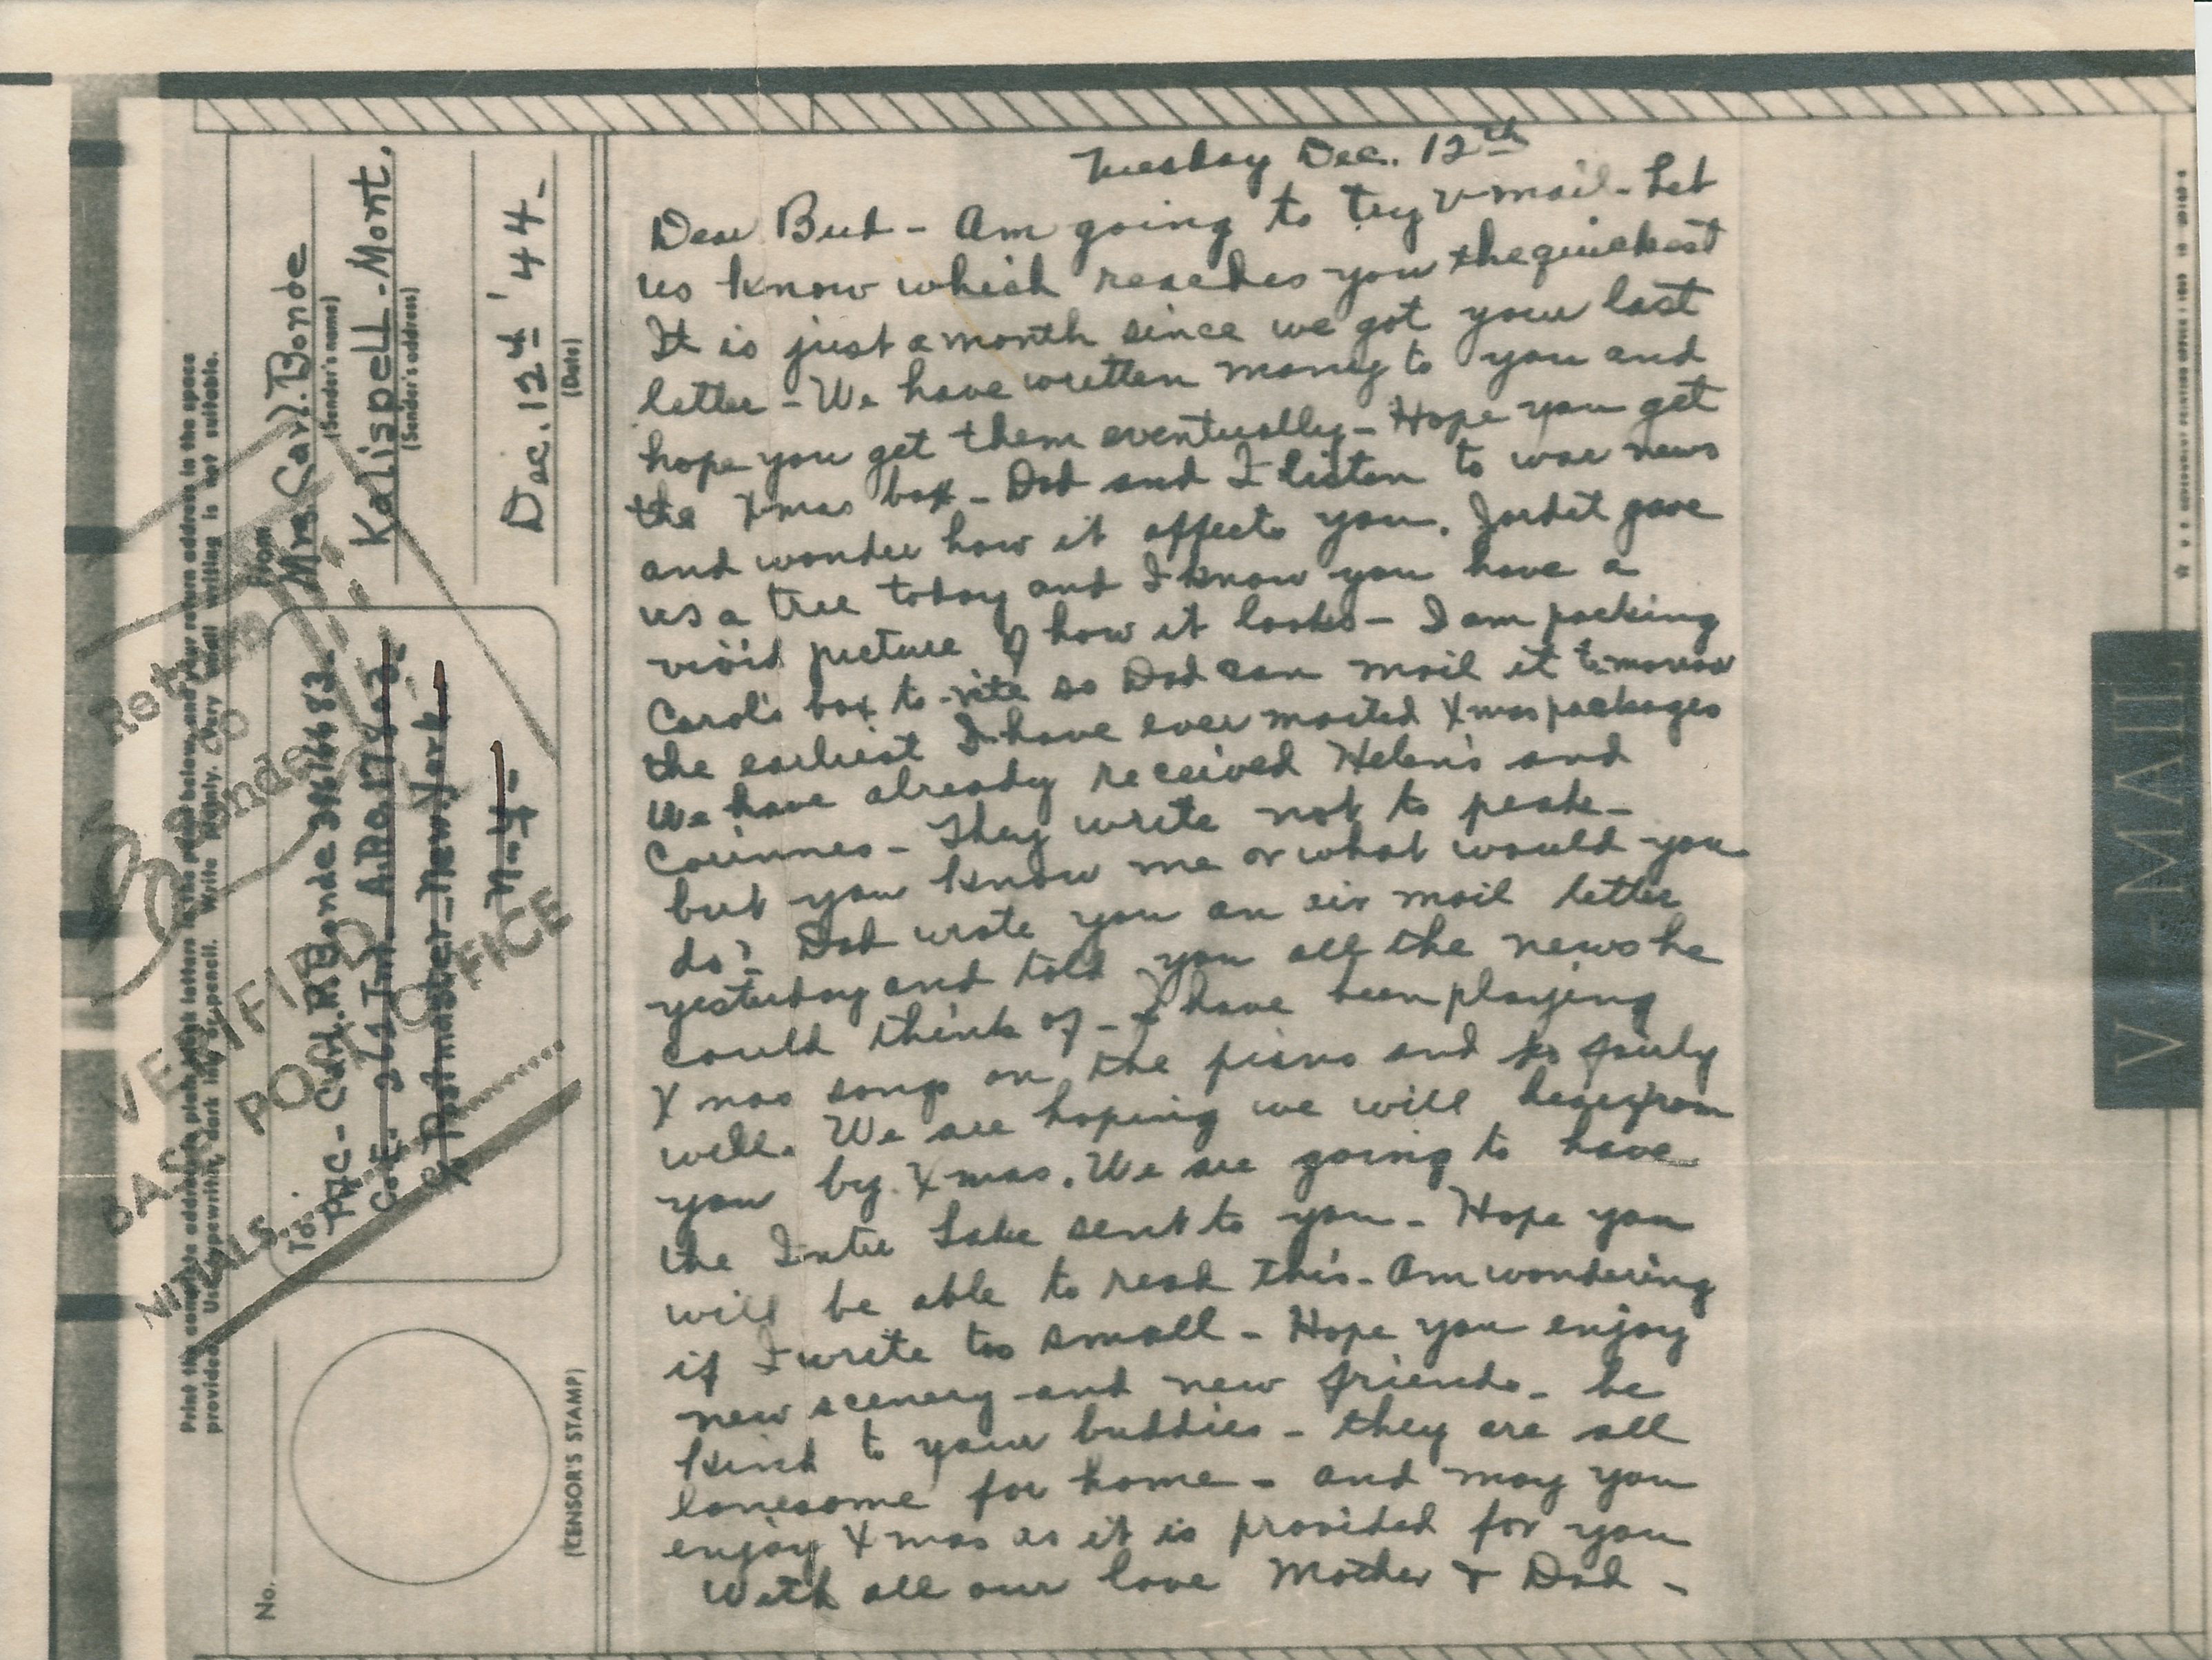 Print the complete address in plain block letters in the panel below, and your return address in the space
provided. Use typewriter, dark ink, or pencil. Write plainly. Very small writing is not suitable.
No.
(CENSOR'S STAMP)
To:
Pfc- Carl. R. Bonde 39616683-
Co. E- Inf- A.P.O. 17843-
℅ Postmaster-New York-
N-Y-
From
Mrs. Carl. Bonde
(Sender's name)
Kalispell-Mont.
(Sender's address)
Dec. 12th '44-
(Date)
VERIFIED
BASE POST OFFICE
INITIALS
Return
to
Sender
Tuesday Dec. 12th
Dear Bud - Am going to try V-mail - Let
us know which reaches you the quickest
It is just a month since we got your last
letter - We have written many to you and
hope you get them eventually - Hope you get
the Xmas box - Dad and I listen to war news
and wonder how it affects you. gave
us a tree today and I know you have a
vivid picture of how it looks - I am packing
Carol's box to-nite so Dad can mail it tomorrow
the earliest I have ever mailed Xmas packages
We have already received Helen's and
Corinnes - They write not to peak -
but you know me or what would you
do? Dad wrote you an air mail letter
yesterday and told you all the news he
could think of - I have been playing
Xmas songs on the piano and go fairly
well. We are hoping we will hear from
you by Xmas. We are going to have
the Inter Lake sent to you - Hope you
will be able to read this - Am wondering
if I write too small - Hope you enjoy
new scenery and new friends - be
kind to your buddies - they are all
lonesome for home - and may you
enjoy Xmas as it is provided for you
With all our love Mother & Dad -
V-MAIL